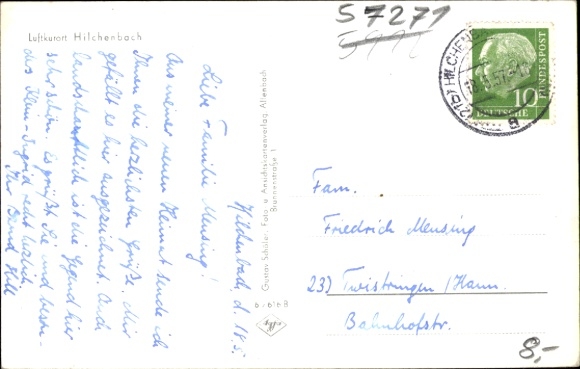 Luftkurort Hilchenbach
Hilchenbach, d. 18.5.
Liebe Familie Mensing!
Aus meiner neuen Heimat sende ich
Ihnen die herzlichsten Grüße. Mir
gefällt es hier ausgezeichnet. Auch
landschaftlich ist die Gegend hier
sehr schön. Es grüßt Sie und beson-
ders Klein-Ingrid recht herzlich
Ihr Bernd Hill
Gustav Schüler, Foto- u. Ansichtskartenverlag, Allenbach
Brunnenstraße 1
b / 616 B
57271
(21b) HILCHENB
a
10
DEUTSCHE
BUNDESPOST
Fam.
Friedrich Mensing
23) Twistringen / Hann.
Bahnhofstr.
8,-